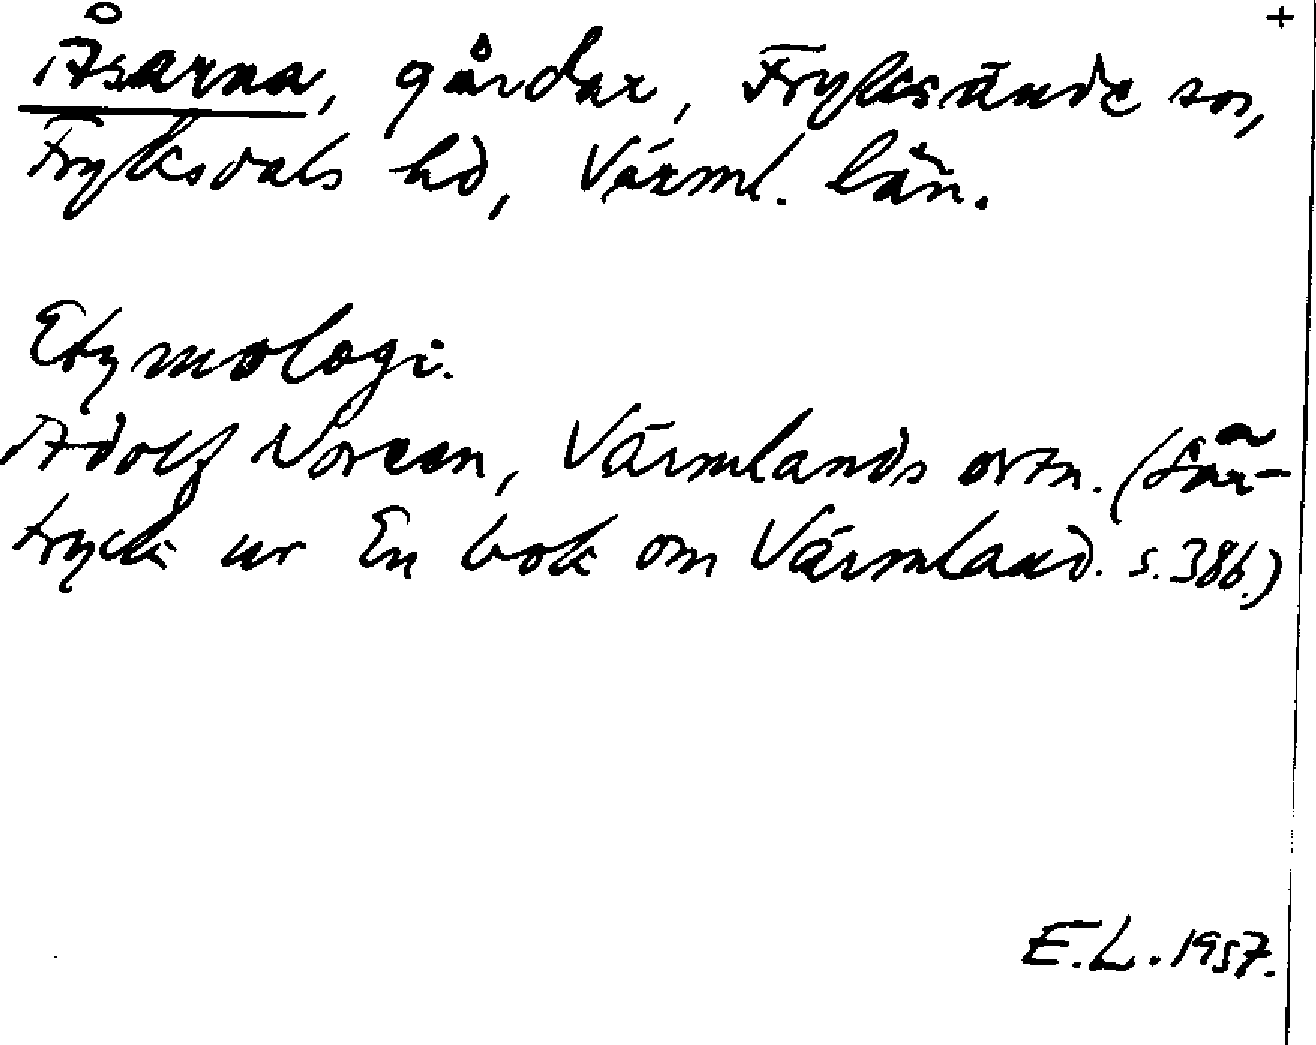 +
Åsarna, gårdar, Fryksände sn,
Fryksdals hd, Värml. län.
Etymologi.
Adolf Noreen, Värmlands ortn. (Sär-
tryck ur En bok om Värmland. s. 386.)
E.L. 1957.